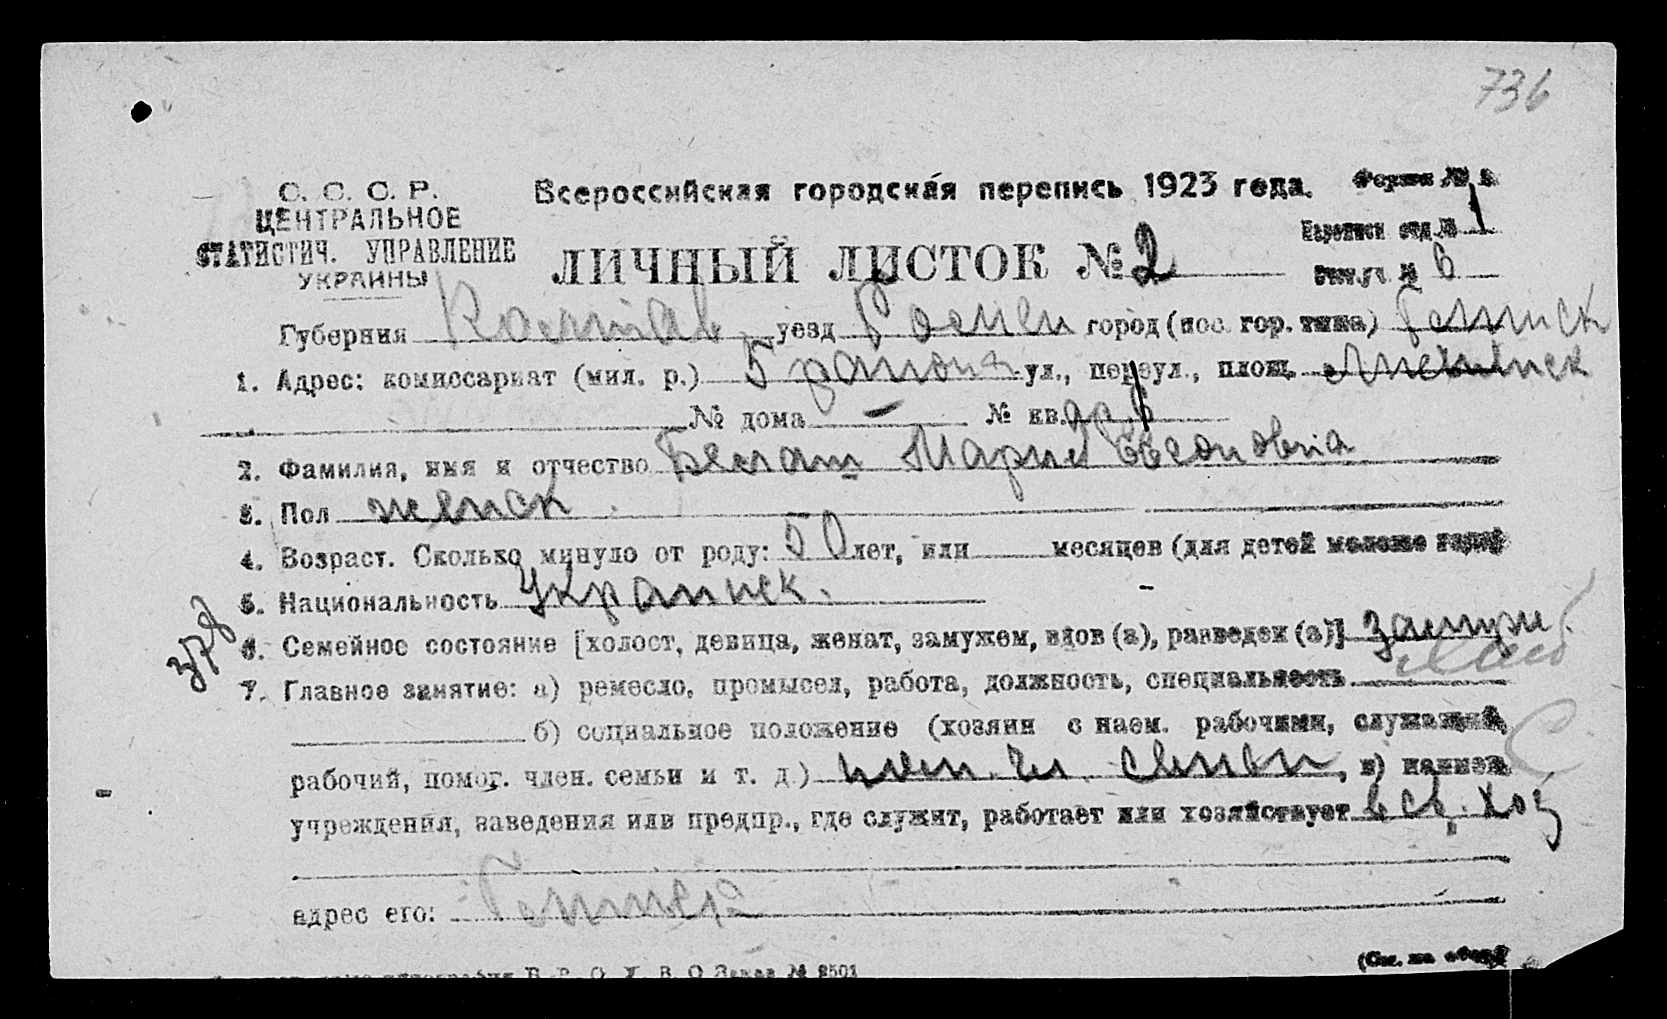 736
С. С. С. Р.
ЦЕНТРАЛЬНОЕ
СТАТИСТИЧ. УПРАВЛЕНИЕ
УКРАИНЫ
Всероссийская городская перепись 1923 года.
Форма №
ЛИЧНЫЙ ЛИСТОК № 2
отд. № 1
№ 6
Губерния уезд город (пос. гор. типа) Геническ
1. Адрес: комиссариат (мил. р.) 5 района ул., переул., площ.
№ дома — № кв.
2. Фамилия, имя и отчество Мария
3. Пол женск.
4. Возраст. Сколько минуло от роду: 50 лет, или месяцев (для детей моложе года)
5. Национальность Украинск.
378
6. Семейное состояние [холост, девица, женат, замужем, вдов (а), разведен (а)] замуж.
7. Главное занятие: а) ремесло, промысел, работа, должность, специальность
б) социальное положение (хозяин с наем. рабочими, служащий,
рабочий, помог. член. семьи и т. д.) чл. семьи, в) наимен.
учреждения, заведения или предпр., где служит, работает или хозяйствует в св. хоз
адрес его:
Заказ № 2501
(См. на обор.)